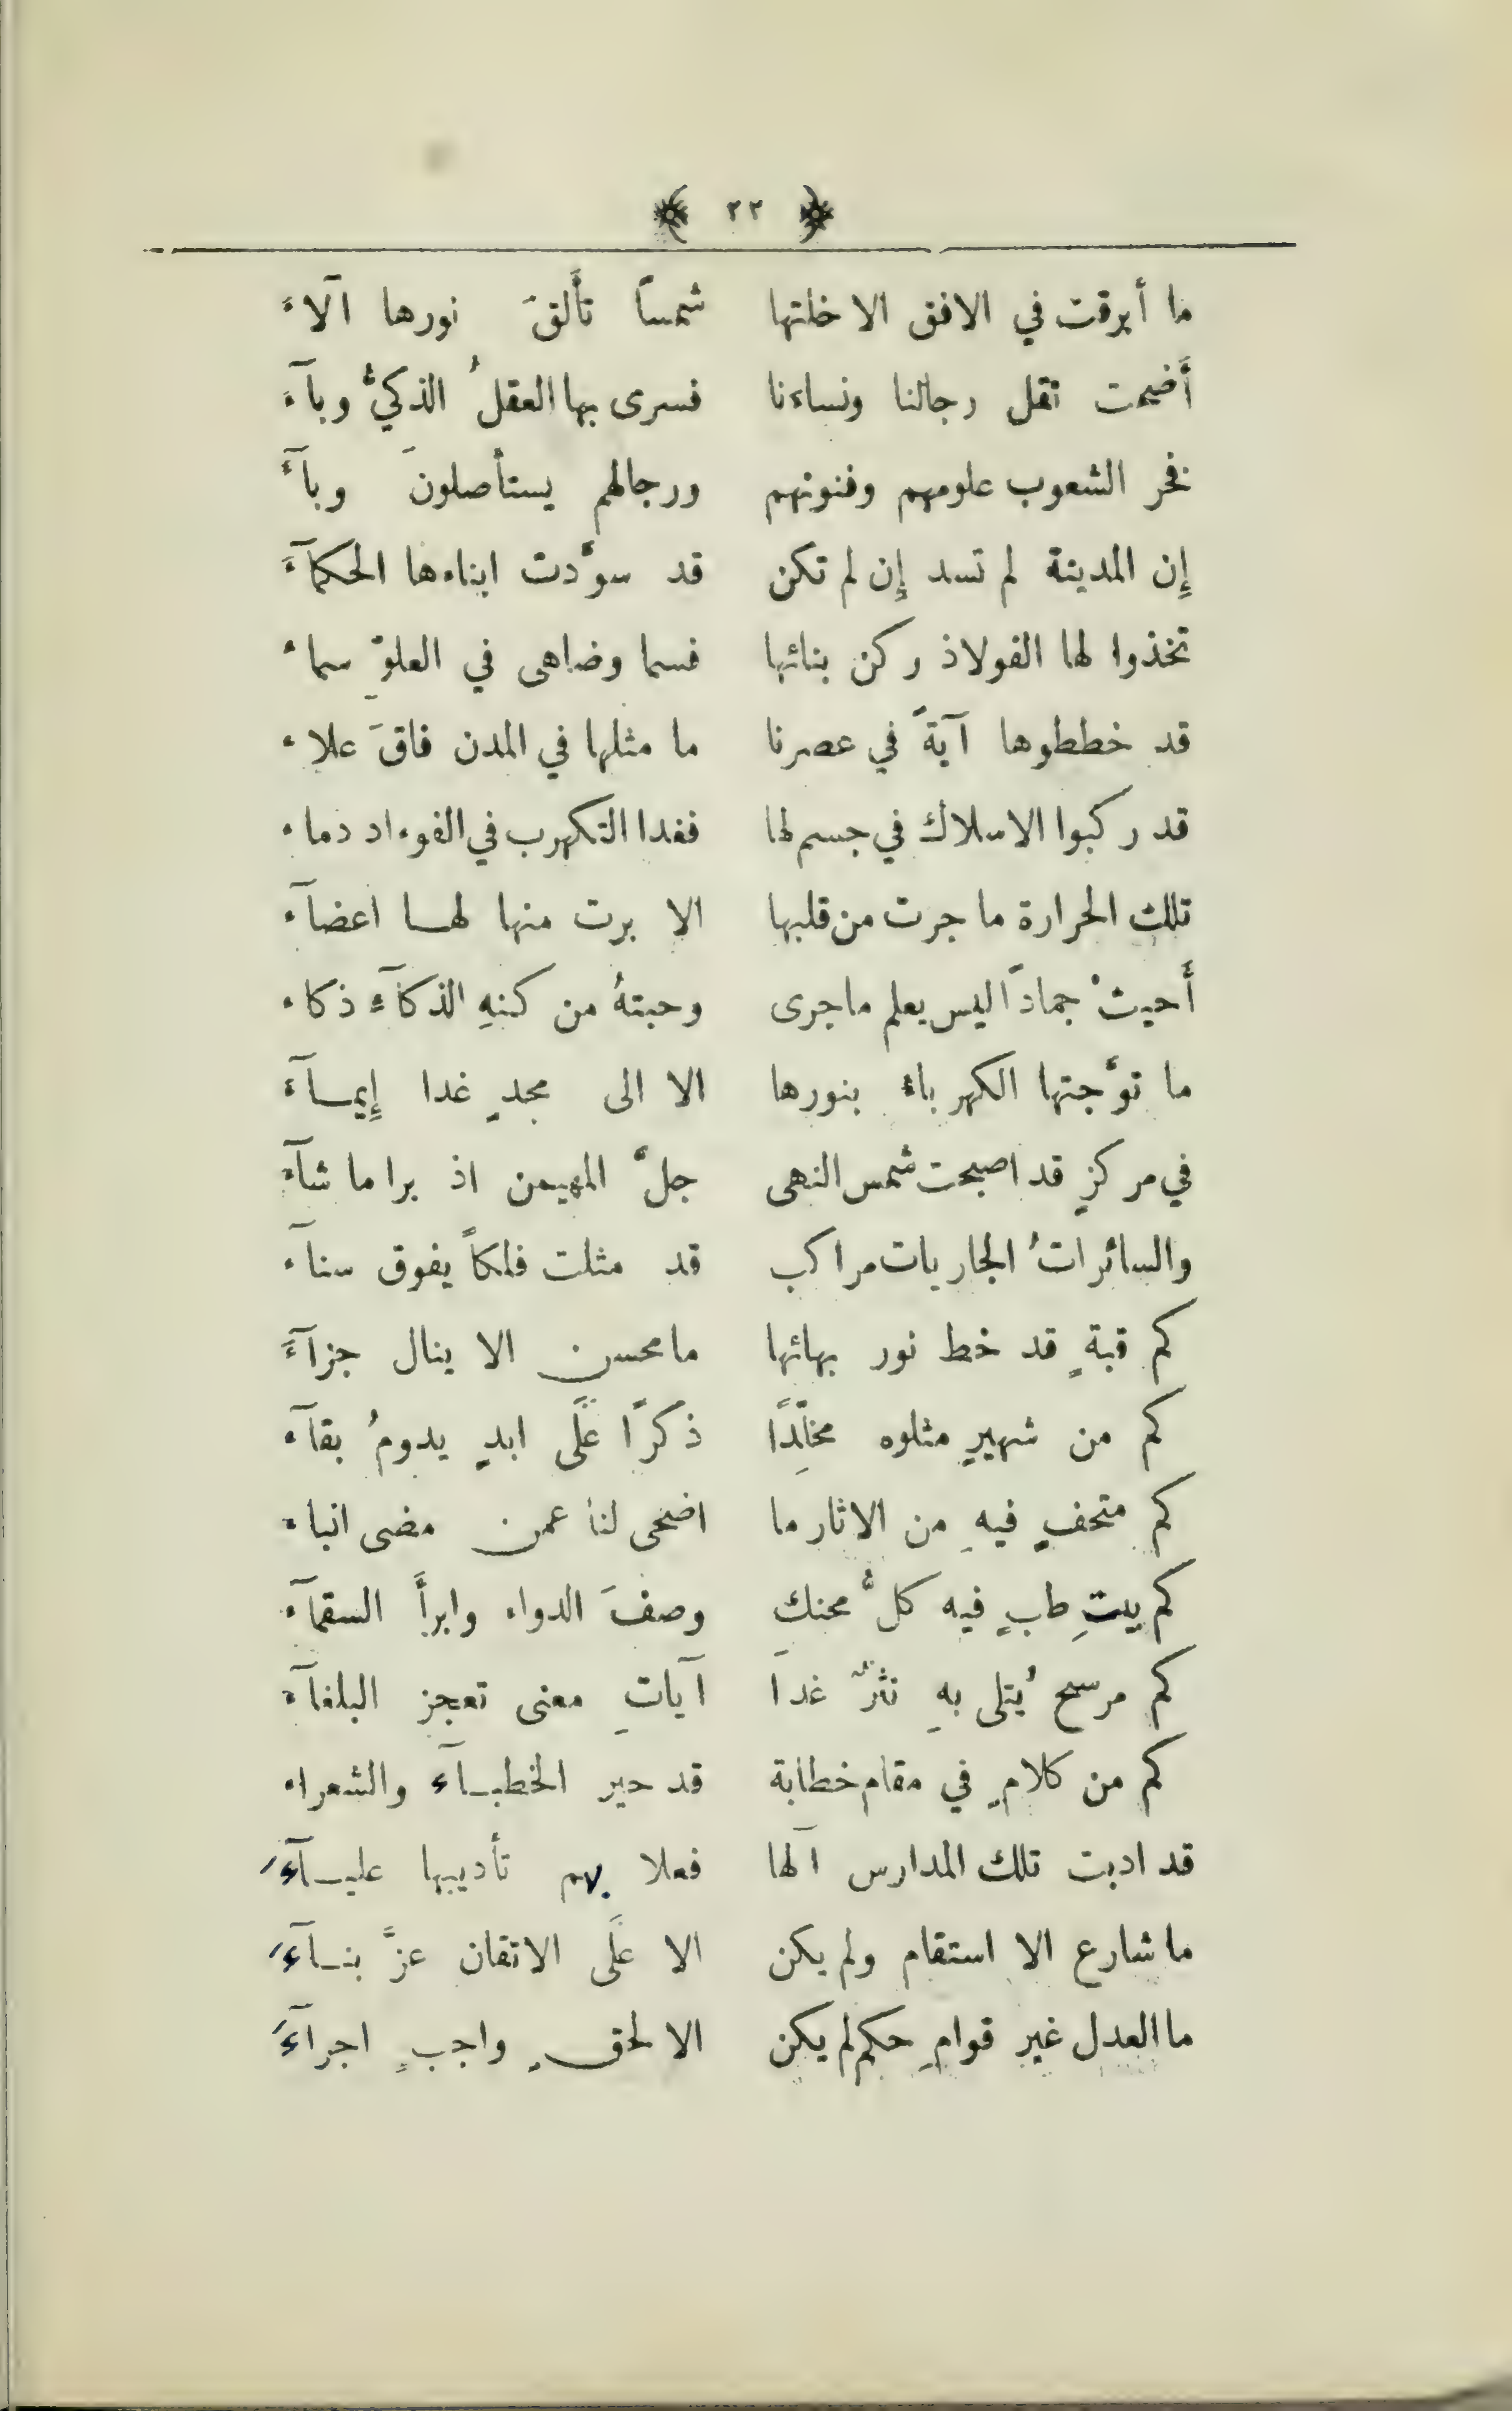 ﴿ ٢٢ ﴾
ما أبرقت في الافق الا خلتها شمساً تأَلقَ نورها الآءَ
أَضحت تقل رجالنا ونساءنا فسرى بها العقلُ الذكيُّ وبآء
فخر الشعوب علومهم وفنونهم ورجالهم يستأصلونَ وبآءً
إِن المدينة لم تسد إِن لم تكن قد سوَّدت ابناءها الحكمآءَ
تخذوا لها الفولاذ ركن بنائها فسما وضاهى في العلوّ سماءً
قد خططوها آيةً في عصرنا ما مثلها في المدن فاقَ علاء
قد ركبوا الاسلاك في جسم لها فغدا التكهرب في الفوءاد دماء
تلك الحرارة ما جرت من قلبها الا برت منها لها اعضآء
أَحيتْ جماداً ليس يعلم ماجرى وحبتهُ من كنهِ الذكآءَ ذكاء
ما توَّجتها الكهرباءُ بنورها الا الى مجدٍ غدا إِيمآءَ
في مركزٍ قد اصبحت شمس النهى جلَّ المهيمن اذ برا ما شآء
والسائراتُ الجاريات مراكب قد مثلت فلكاً يفوق سنآء
كم قبةٍ قد خط نور بهائها ما محسن الا ينال جزآءً
كم من شهيرٍ مثلوه مخلِّدًا ذكرًا عَلَى ابدٍ يدومُ بقآء
كم متحفٍ فيهِ من الاثار ما اضحى لنا عمن مضى انباء
كم بيتِ طابٍ فيه كلُّ محنك وصفَ الدواء وابرأَ السقمآء
كم مرسح يُتلى بهِ نثرٌ غدا آياتِ معنى تعجز البلغآء
كم من كلامٍ في مقام خطابة قد حير الخطبآء والشعراء
قد ادبت تلك المدارس آلها فعلا بهم تأديبها عليآءَ
ما شارع الا استقام ولم يكن الا عَلَى الاتقان عزَّ بنآءَ
ما العدل غير قوامِ حكم لم يكن الا لحقٍ واجبٍ اجرآءَ